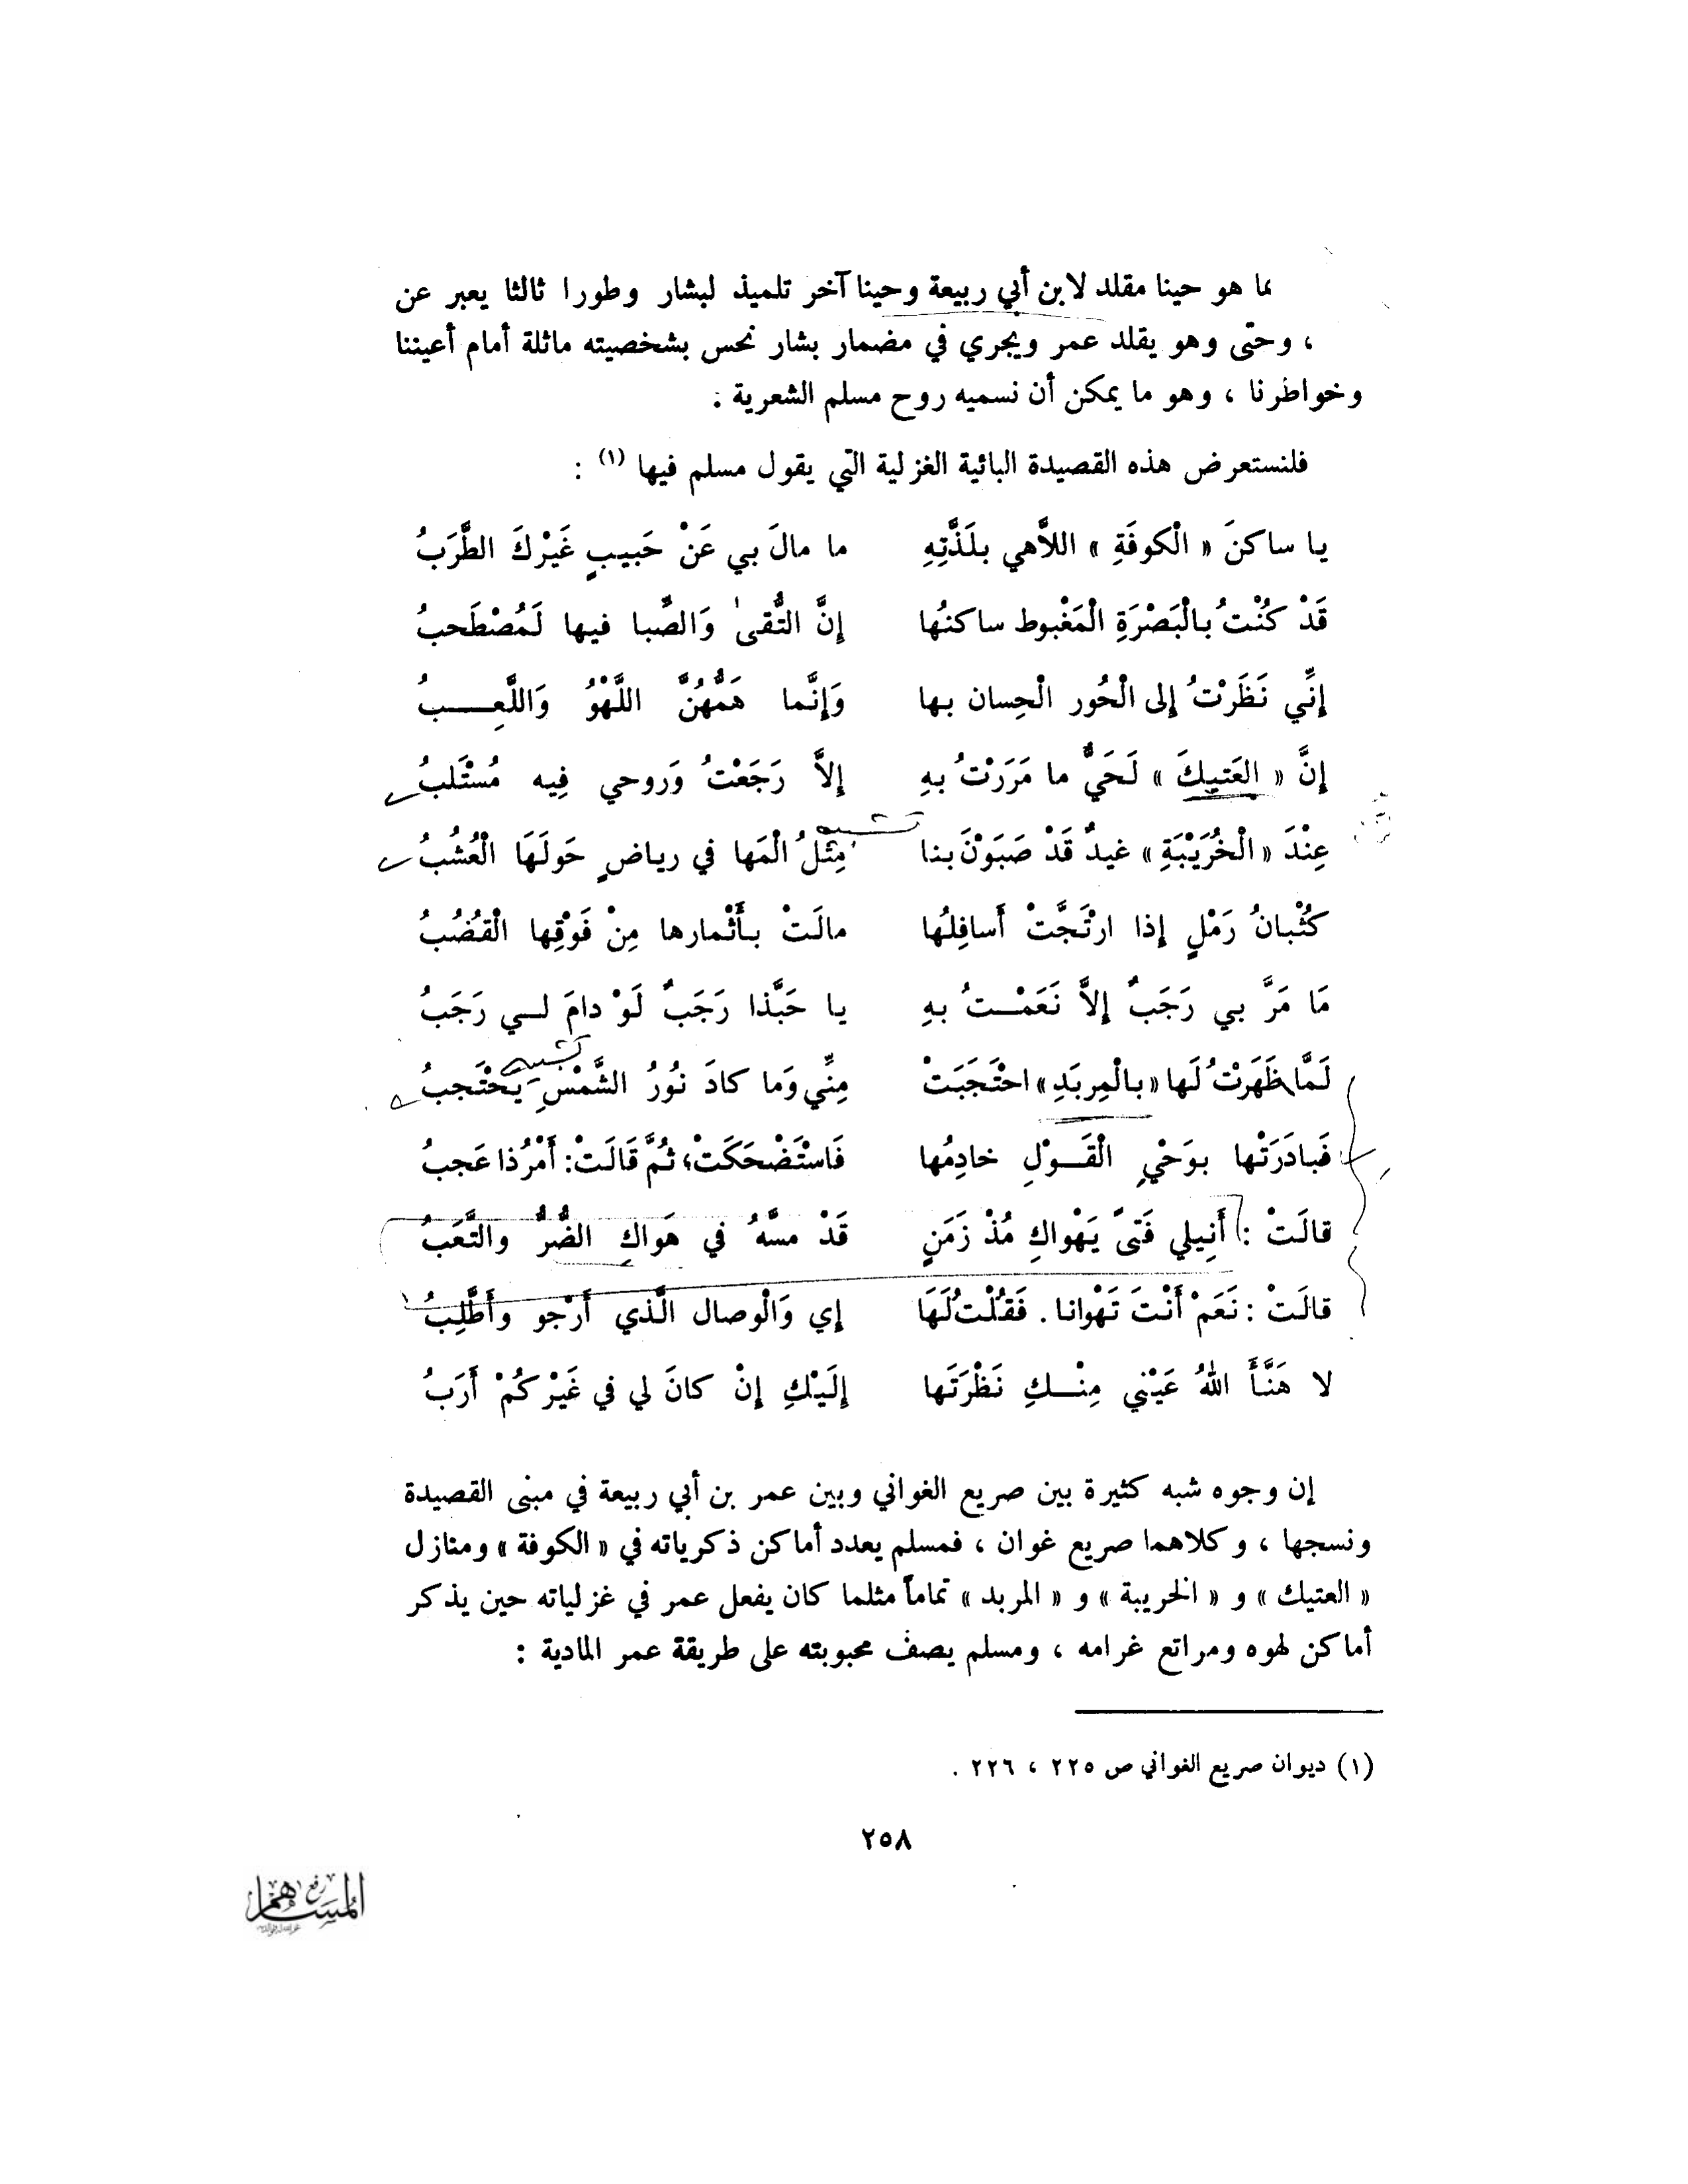 بما هو حينا مقلد لابن أبي ربيعة وحينا آخر تلميذ لبشار وطورا ثالثا يعبر عن
، وحتى وهو يقلد عمر ويجري في مضمار بشار نحس بشخصيته ماثلة أمام أعيننا
وخواطرنا ، وهو ما يمكن أن نسميه روح مسلم الشعرية .
فلنستعرض هذه القصيدة البائية الغزلية التي يقول مسلم فيها (١) :
يا ساكنَ « الْكوفَةِ » اللاَّهي بلَذَّتِهِ ما مالَ بي عَنْ حَبيبٍ غَيْرِكَ الطَّرَبُ
قَدْ كُنْتُ بالْبَصْرَةِ الْمَغْبوط ساكنُها إنَّ التُّقىٰ وَالصِّبا فيها لَمُصْطَحبُ
إنِّي نَظَرْتُ إلى الْحُور الْحِسان بها وَإنَّما هَمُّهُنَّ اللَّهْوُ وَاللَّعِـبُ
إنَّ « العَتيكَ » لَحَيٌّ ما مَرَرْتُ بهِ إلاَّ رَجَعْتُ وَروحي فِيه مُسْتَلبُ
تشبيه
عِنْدَ « الْخُرَيْبَةِ » غيدٌ قَدْ صَبَوْنَ بنا مِثْلُ الْمَها في رياضٍ حَولَهَا الْعُشُبُ
كُثْبانُ رَمْلٍ إذا ارْتَجَّتْ أَسافِلُها مالَتْ بأَثْمارها مِنْ فَوْقِها الْقُضُبُ
مَا مَرَّ بي رَجَبٌ إلاَّ نَعَمْـتُ بهِ يا حَبَّذا رَجَبٌ لَوْ دامَ لـي رَجَبُ
تشبيه
لَمَّا ظَهَرْتُ لَها « بالْمِربَدِ » احْتَجَبَتْ مِنِّي وَما كادَ نُورُ الشَّمْسِ يَحْتَجبُ
فَبادَرَتْها بوَحْيِ الْقَـوْلِ خادِمُها فَاسْتَضْحَكَتْ؛ ثُمَّ قَالَتْ: أَمْرُ ذا عَجبُ
قالَتْ : أَنِيلي فَتىً يَهْواكِ مُذْ زَمَنٍ قَدْ مسَّهُ في هَواكِ الضُّرُّ والتَّعَبُ
قالَتْ : نَعَمْ أَنْتَ تَهْوانا . فَقُلْتُ لَهَا إي وَالْوِصال الَّذي أَرْجو وأَطَّلِبُ
لا هَنَّأَ اللهُ عَيْني مِنْـكِ نَظْرَتَها إلَيْكِ إنْ كانَ لي في غَيْرِكُمْ أَرَبُ
إن وجوه شبه كثيرة بين صريع الغواني وبين عمر بن أبي ربيعة في مبنى القصيدة
ونسجها ، وكلاهما صريع غوان ، فمسلم يعدد أماكن ذكرياته في « الكوفة » ومنازل
« العتيك » و « الخريبة » و « المربد » تماماً مثلما كان يفعل عمر في غزلياته حين يذكر
أماكن لهوه ومراتع غرامه ، ومسلم يصف محبوبته على طريقة عمر المادية :
(١) ديوان صريع الغواني ص ٢٢٥ ، ٢٢٦ .
٢٥٨